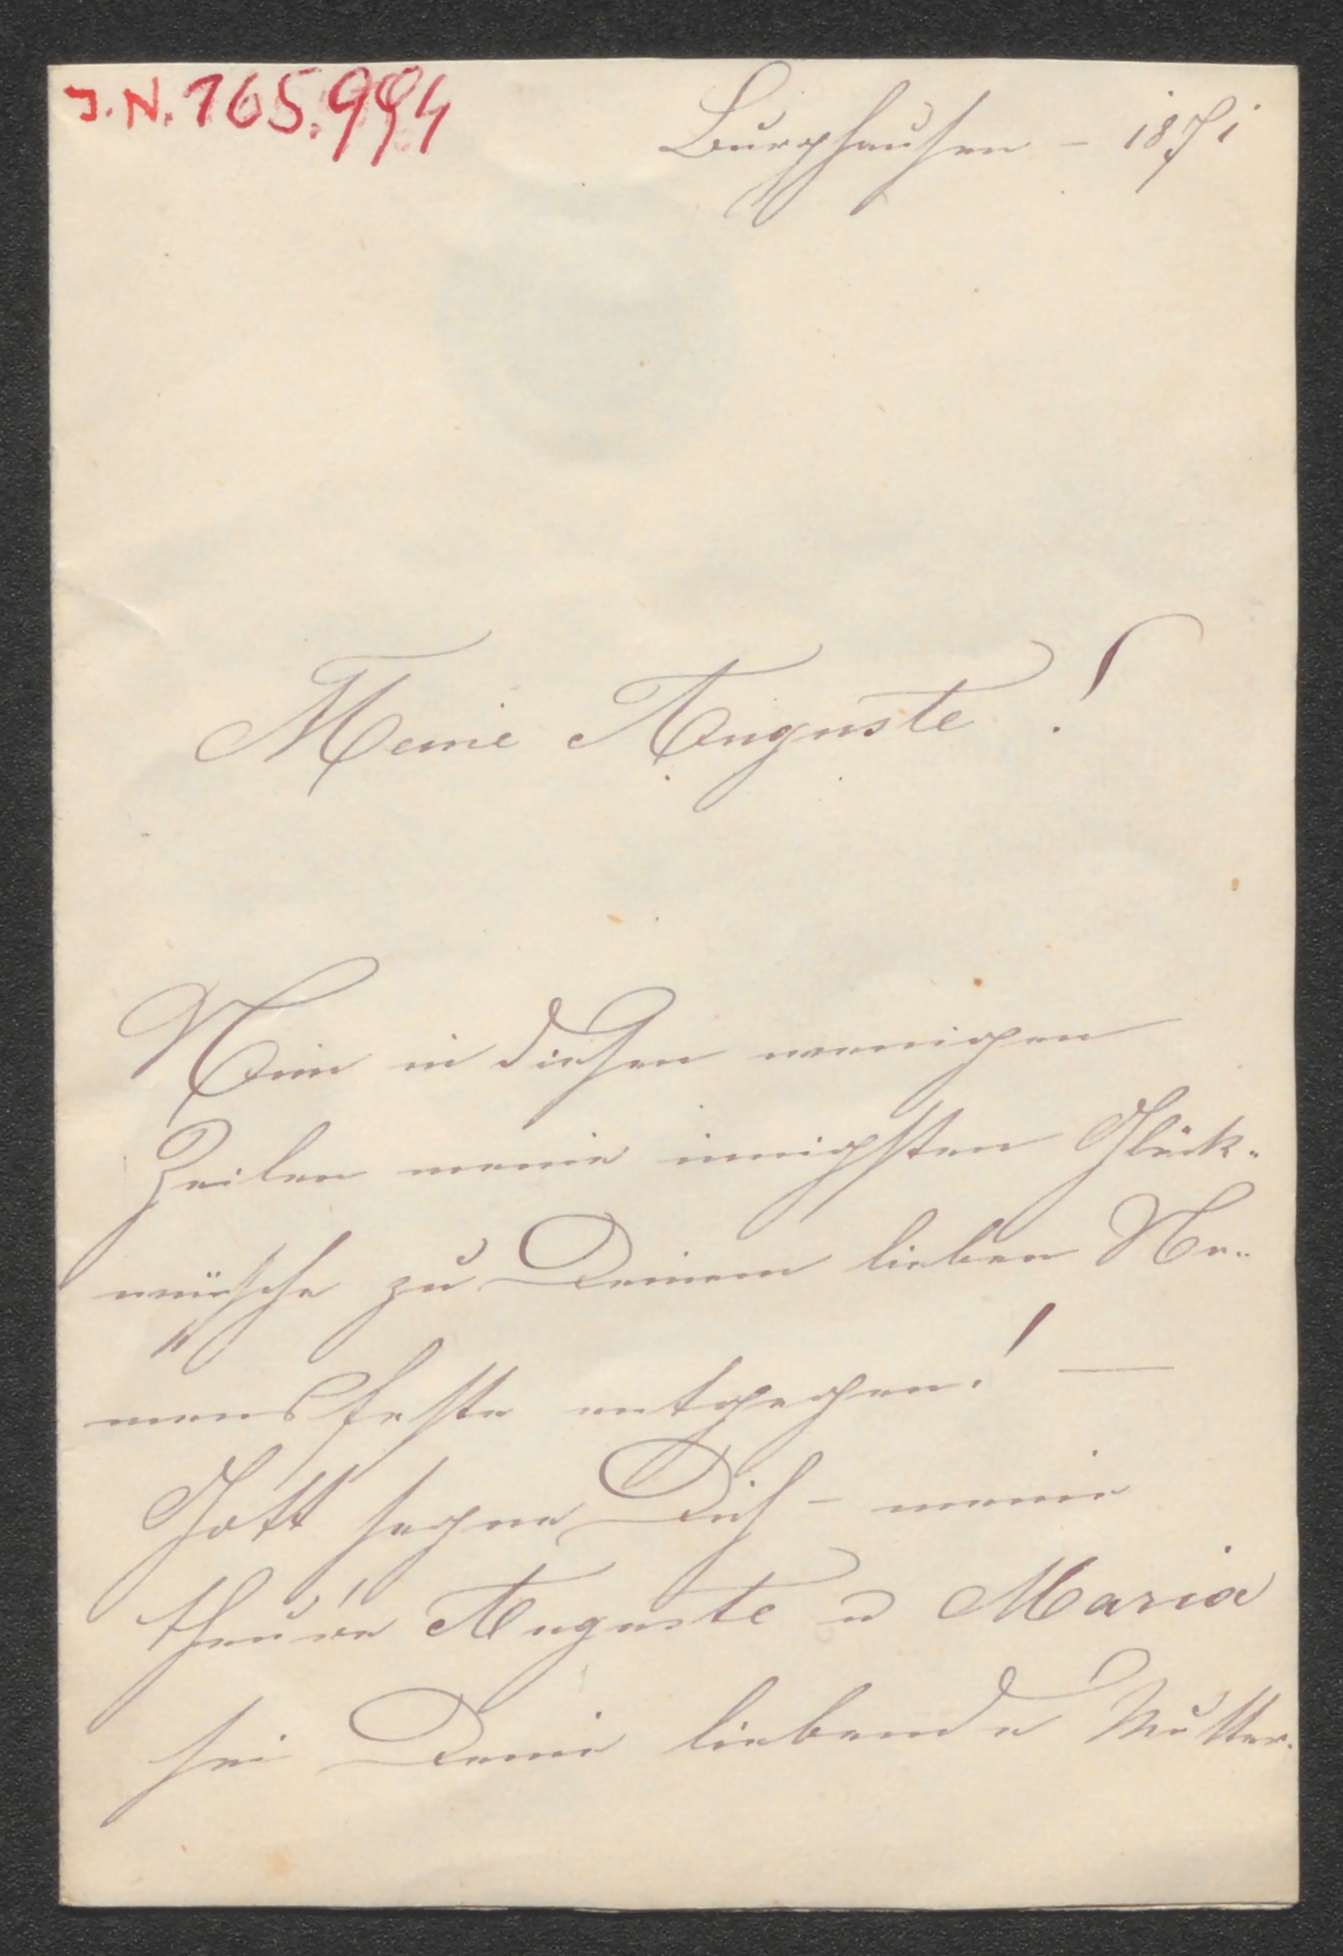 J.N. 165.994
Burghausen – 1871
Meine Auguste!
Nim in diesen wenigen
Zeilen meine innigsten Glück-
wünsche zu Deinem lieben Na-
mensfeste entgegen! —
Gott segne Dich – meine
theure Auguste u Maria
sei Deine liebende Mutter.